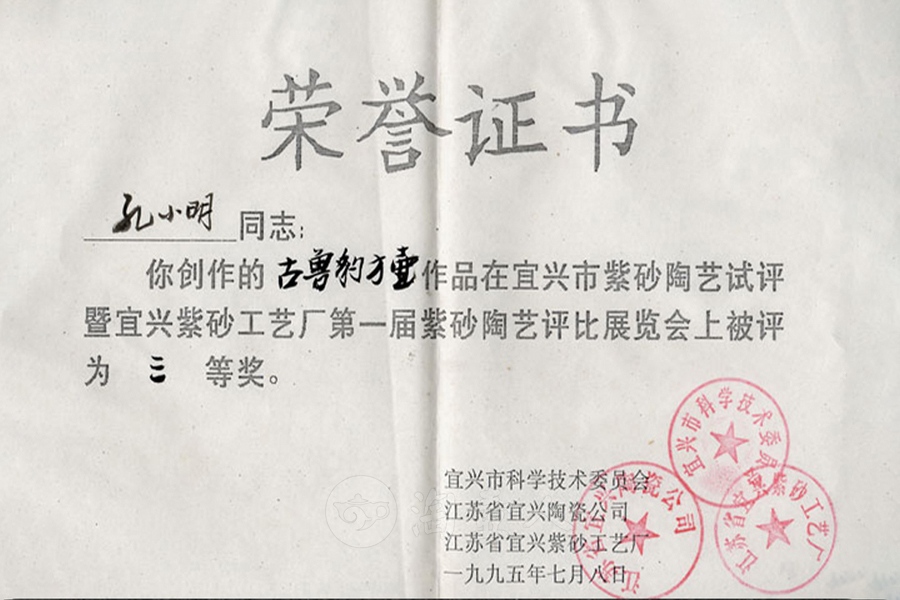 荣誉证书
孔小明同志:
你创作的古兽豹方壶作品在宜兴市紫砂陶艺试评
暨宜兴紫砂工艺厂第一届紫砂陶艺评比展览会上被评
为 三 等奖。
宜兴市科学技术委员会
江苏省宜兴陶瓷公司
江苏省宜兴紫砂工艺厂
一九九五年七月八日
宜兴市科学技术委员会
江苏省宜兴陶瓷公司